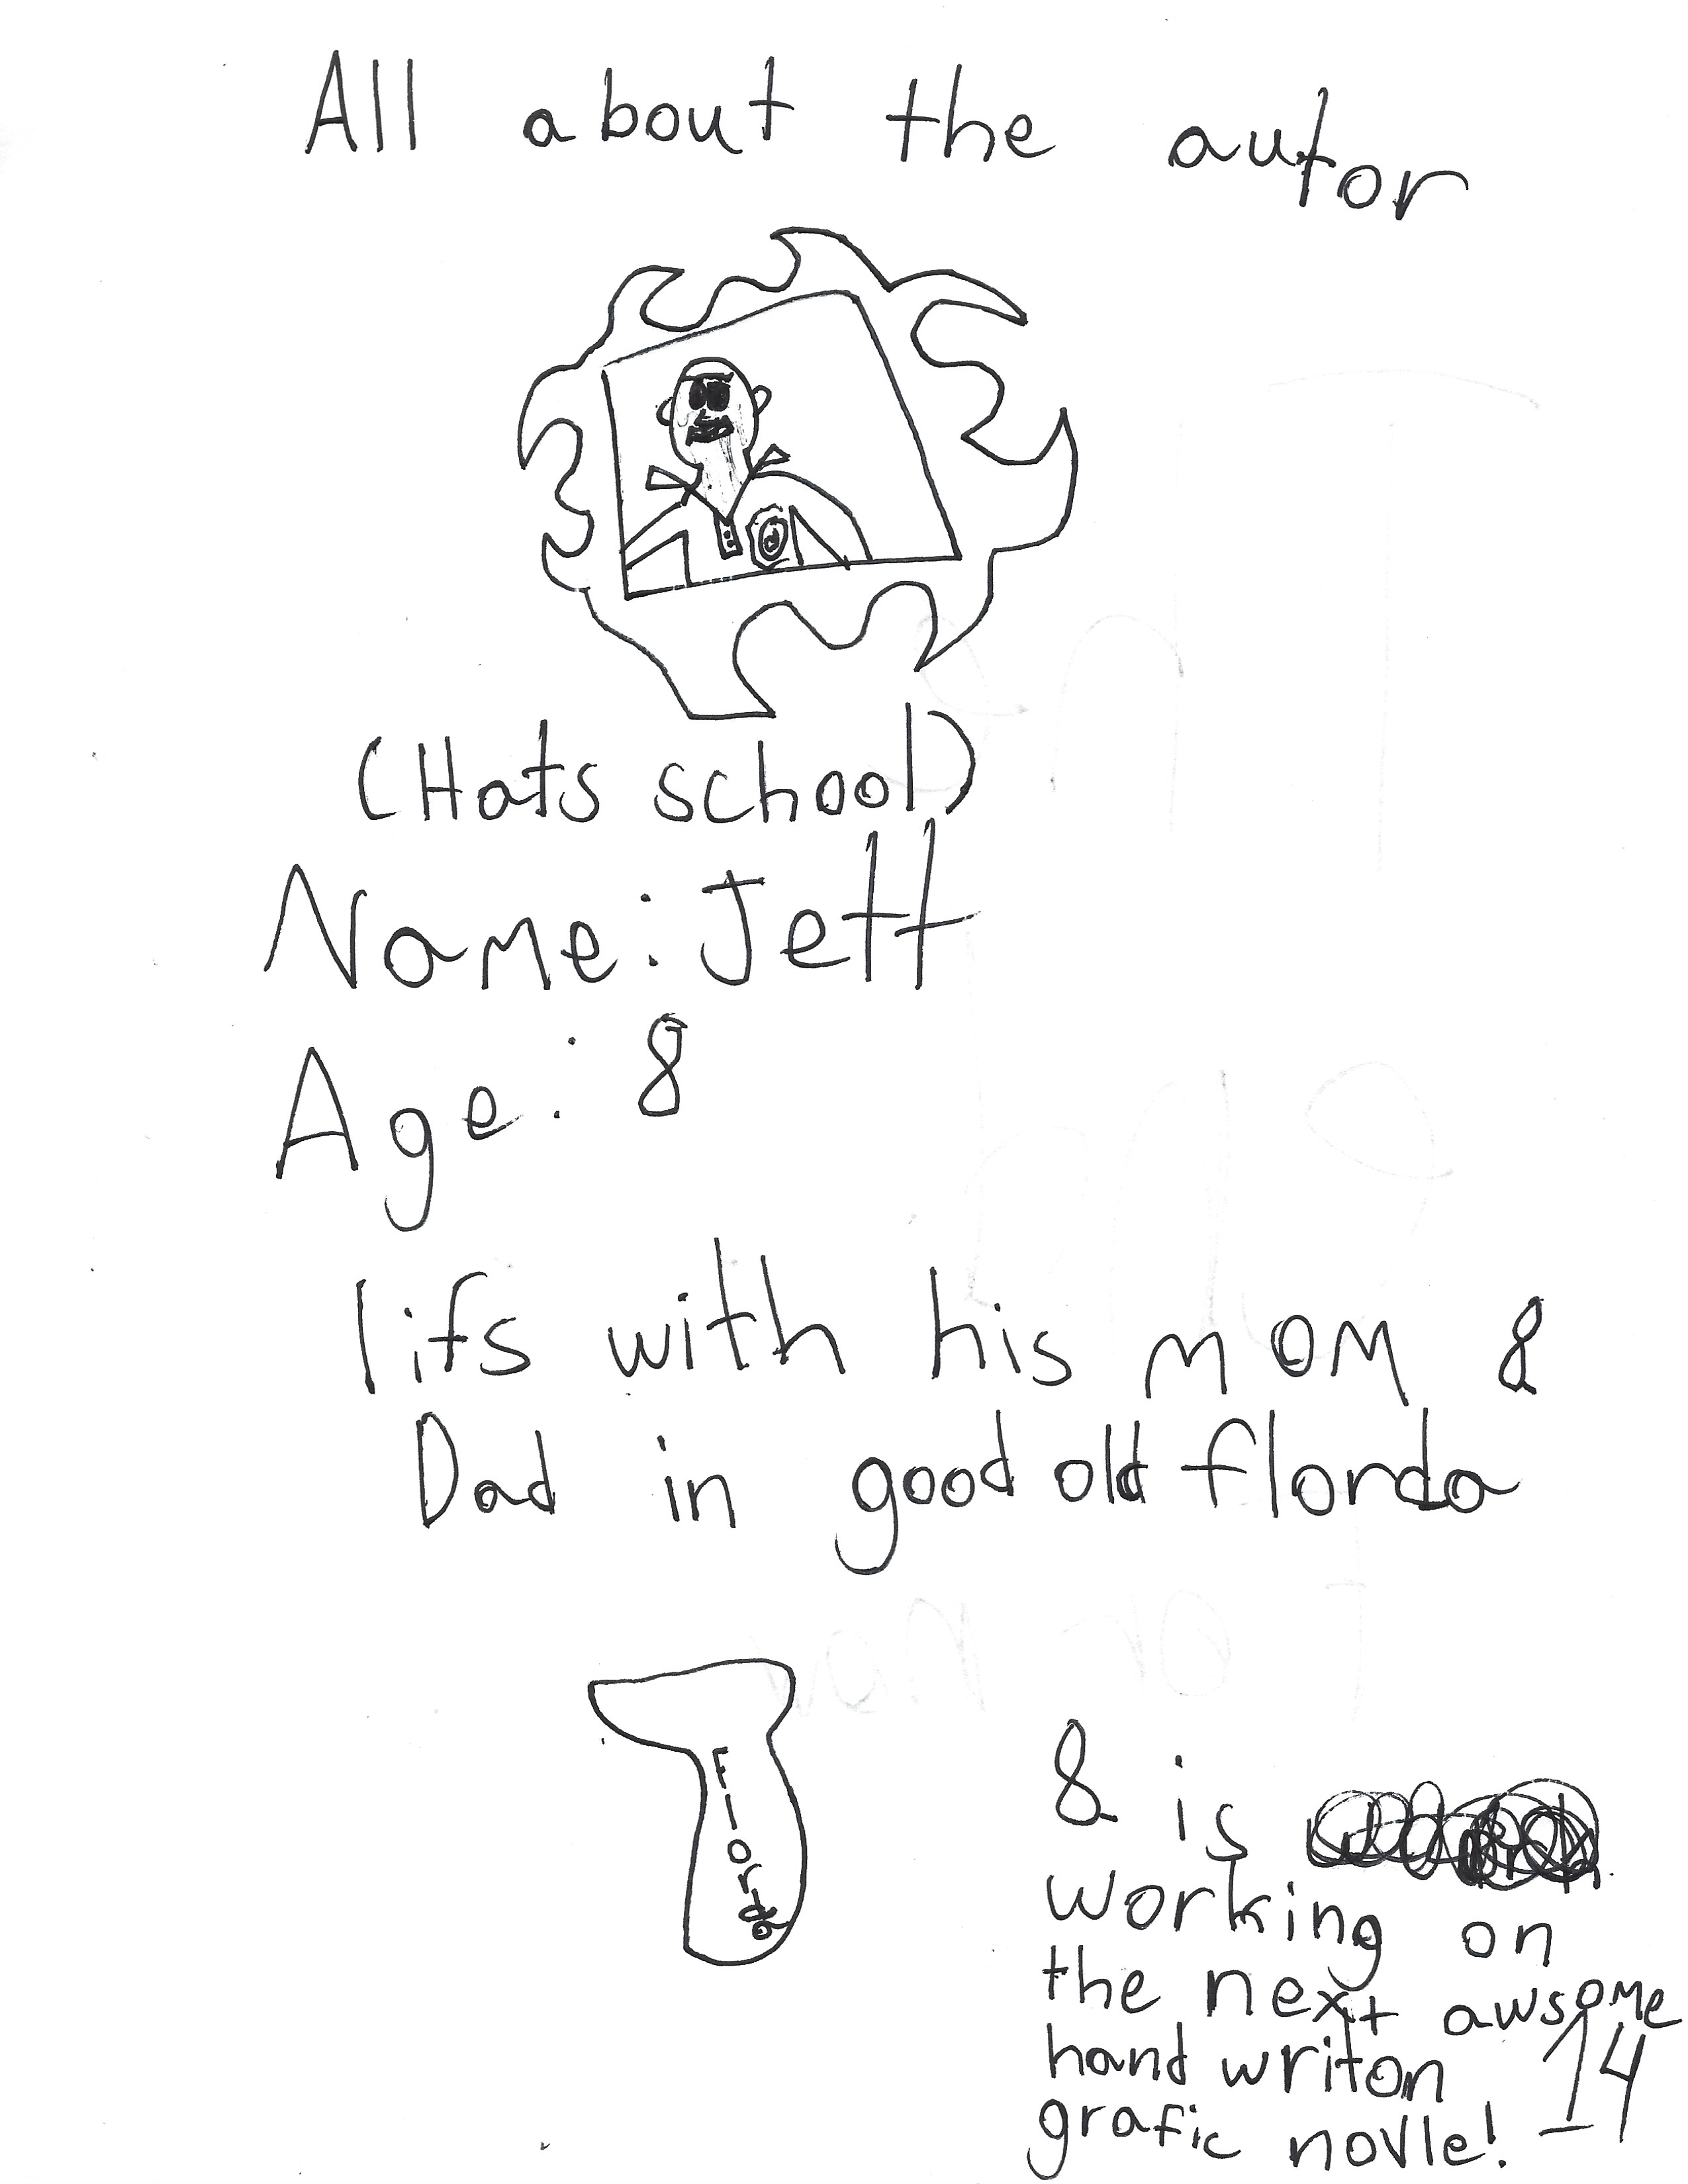 All about the autor
(Hats school)
Name: Jett
Age: 8
lifs with his mom &
Dad in good old florda
Florda
& is
working on
the next awsome
hand writon
grafic novle!
14